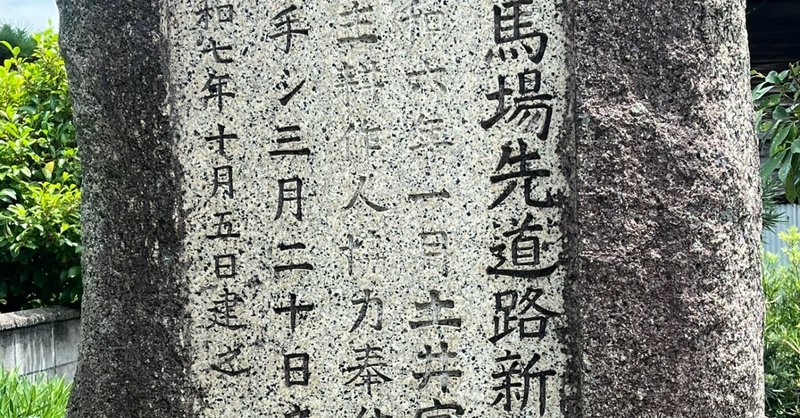 馬場先道路新
和六年一月土井宮
主耕作人協力奉仕
手シ三月二十日
和七年十月五日建之